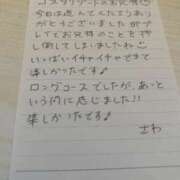 今日は遊んでくださりあり
がとうございましたが
プレイでお兄様のことを押
し倒してしまいましたね
いっぱいイチャイチャできて
楽しかったです♪
ロングコースでしたが、あっと
いう間に感じました!!
楽しかったです♪
さわ